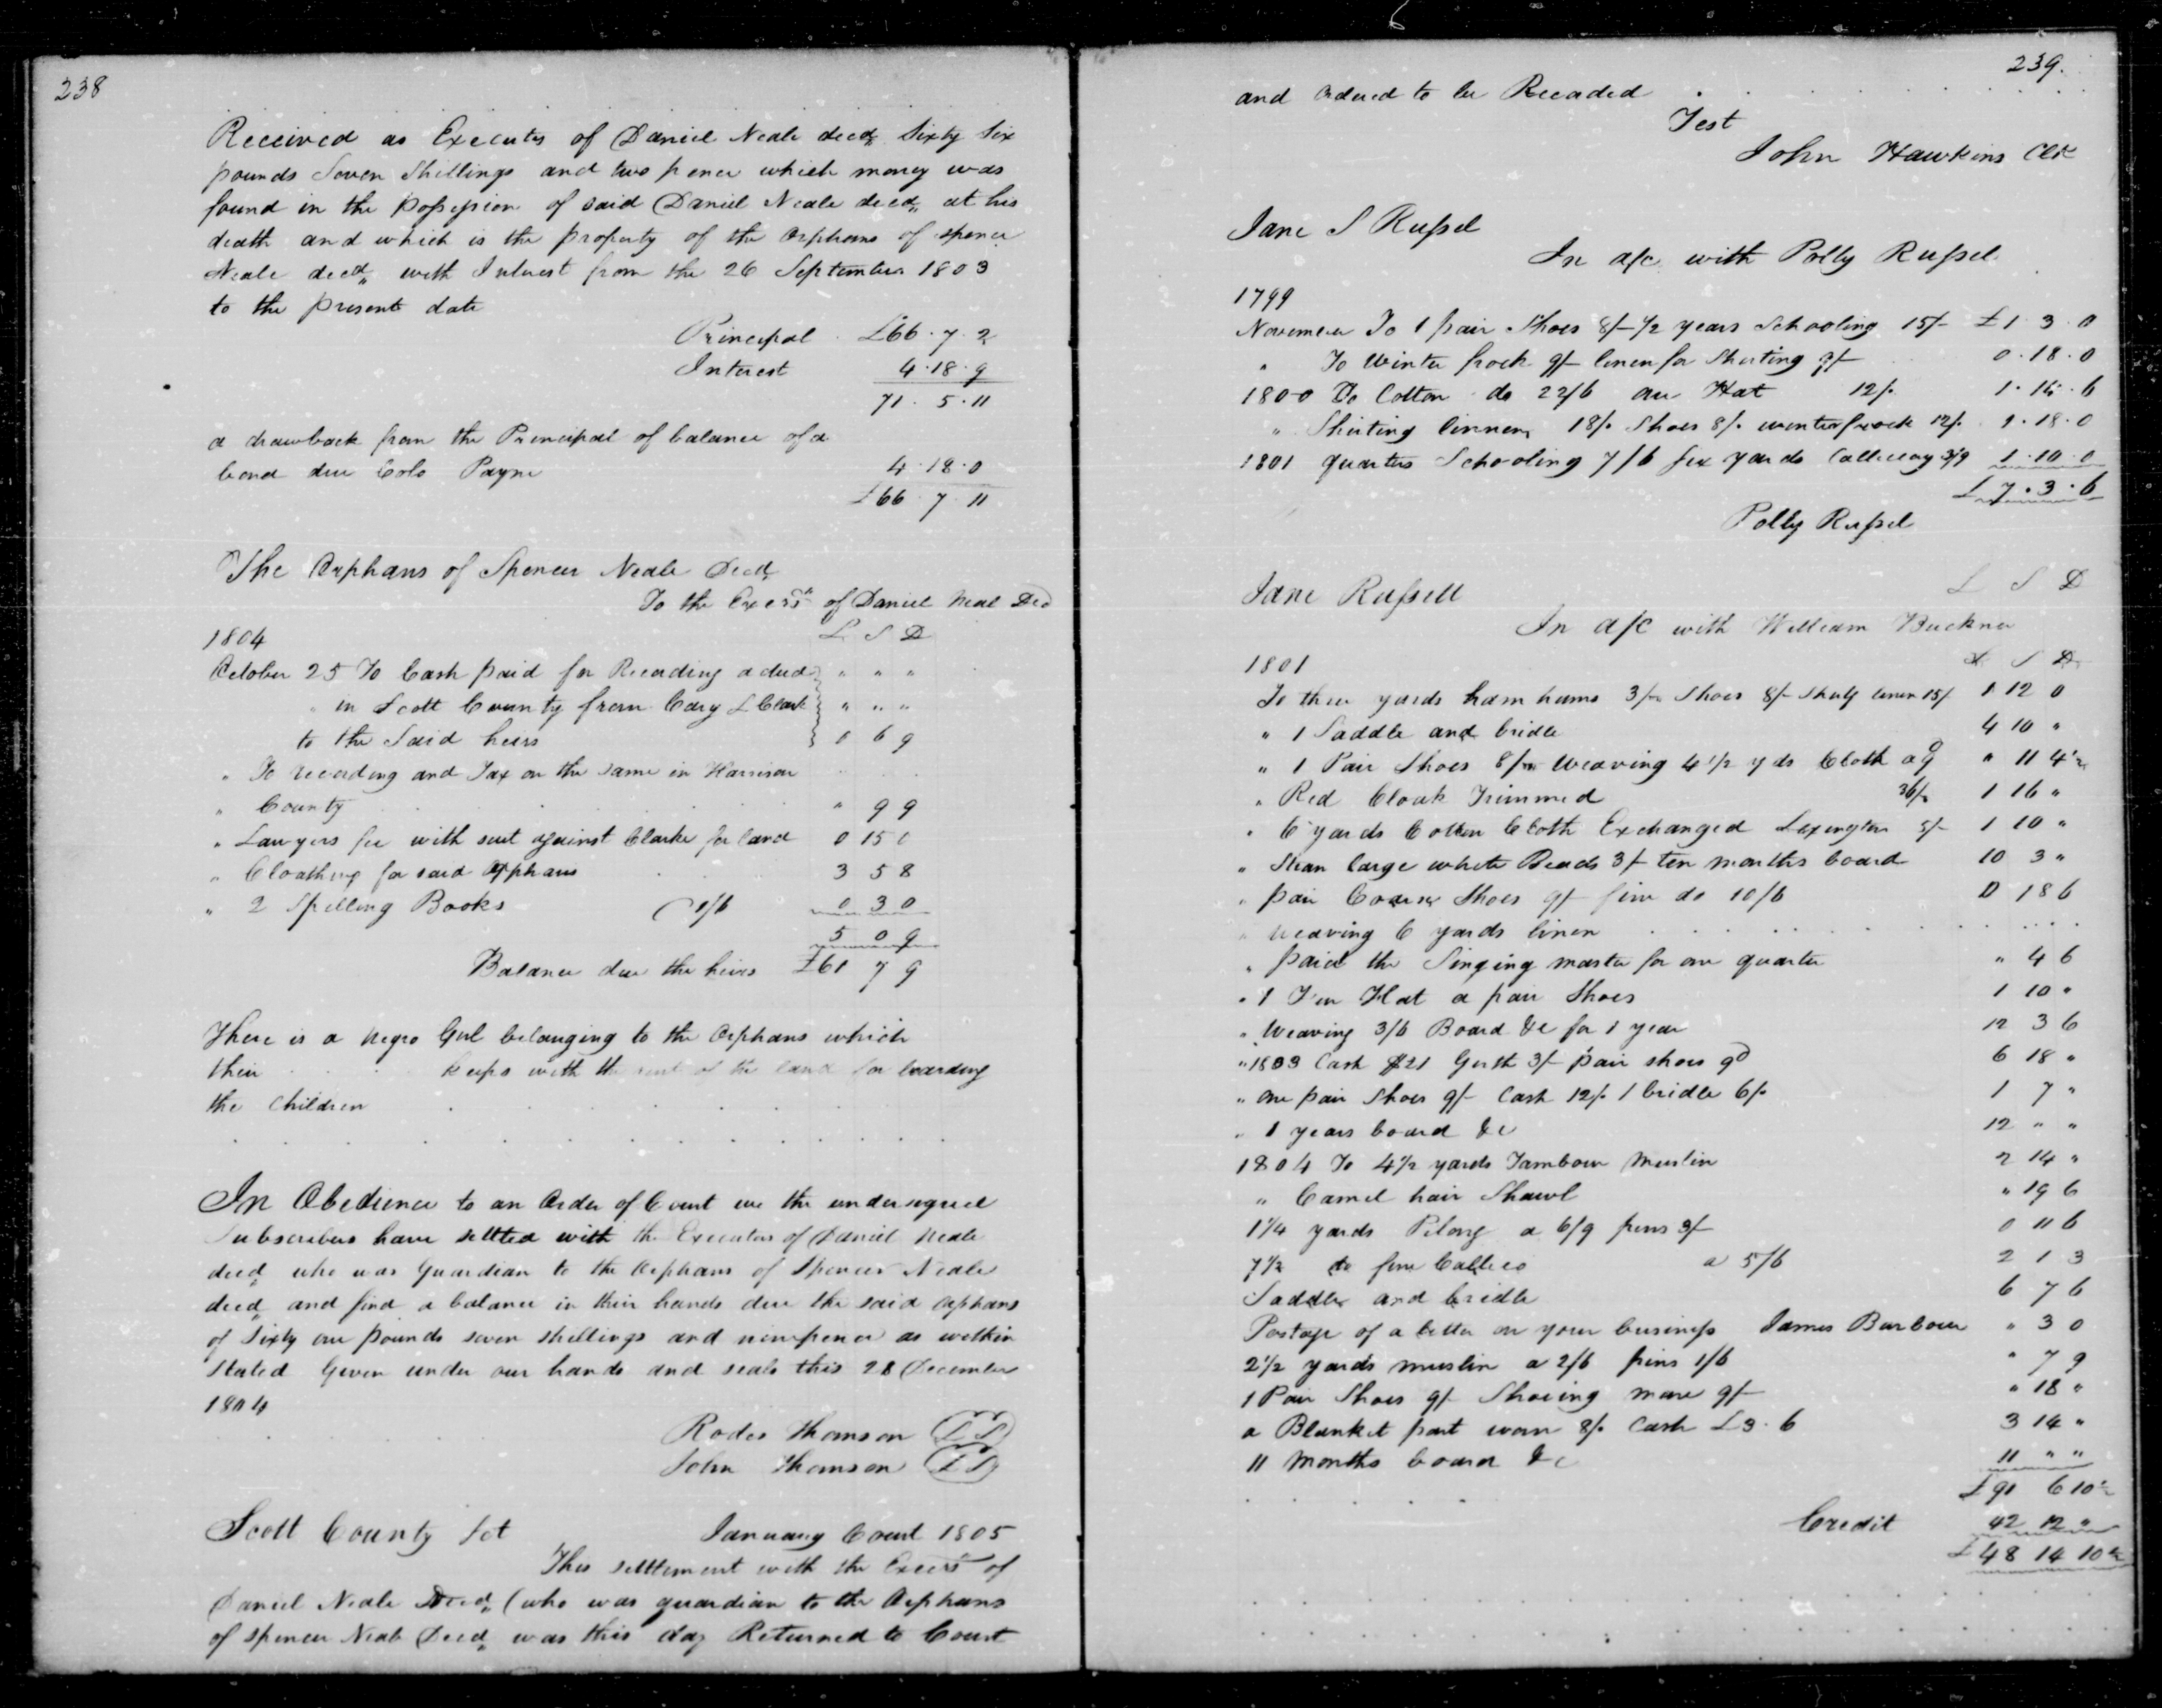 238
Received as Executrs of Daniel Neale decd,, Sixty Six
pounds Seven Shillings and two pence which money was
found in the possession of said Daniel Neale decd,, at his
death and which is the property of the Orphans of Spencer
Neale decd,, with Interest from the 26 September 1803
to the present date
Principal £66 . 7 . 2
Interest 4 . 18 . 9
71 . 5 . 11
a drawback from the Principal of balance of a
bond due Colo Payne 4 . 18 . 0
£66 . 7 . 11
The Orphans of Spencer Neale Decd,,
To the Exors of Daniel Neal Decd
1804 L S D
October 25 To Cash paid for Recording a deed } " " "
" in Scott County from Cary L Clark } " " "
to the Said heirs } 0 6 9
" To recording and Tax on the same in Harrison
" County " 9 9
" Lawyers fee with suit against Clarke for land 0 15 0
" Cloathing for said Orphans 3 5 8
" 2 Spelling Books 1/6 0 3 0
5 0 9
Balance due the heirs £61 7 9
There is a negro Girl belonging to the Orphans which
their keeps with the rent of the land for boarding
the Children
In Obedience to an Order of Court we the undersigned
Subscribers have settled with the Executors of Daniel Neale
decd,, who was Guardian to the Orphans of Spencer Neale
decd,, and find a balance in their hands due the said Orphans
of Sixty one pounds seven shillings and ninepence as within
stated Given under our hands and seals this 28 December
1804
Rodes Thomson (LS)
John Thomson (LS)
Scott County Sct January Court 1805
This settlement with the Exors of
Daniel Neale Decd,, (who was guardian to the Orphans
of Spencer Neale Decd,, was this day Returned to Court
239.
and Ordered to be Recorded
Test
John Hawkins Clk
Jane S Russel
In a/c with Polly Russel
1799
November To 1 pair Shoes 8/- 1/2 years Schooling 15/- £1 . 3 . 0
" To Winter frock 9/- linen for Shirting 9/- 0 . 18 . 0
1800 To Cotton do 22/6 one Hat 12/. 1 . 14 . 6
" Shirting linnen 18/. Shoes 8/. winter frock 12/. 1 . 18 . 0
1801 quarters Schooling 7/6 six yards Callicoy 3/9 1 . 10 . 0
£ 7 . 3 . 6
Polly Russel
Jane Russell L S D
In a/c with William Buckner
1801 L S D
To three yards hamhums 3/- Shoes 8/- Shirtg linen 15/. 1 12 0
" 1 Saddle and bridle 4 10 "
" 1 Pair Shoes 8/- Weaving 4 1/2 yds Cloth a 9d " 11 4 1/2
" Red Cloak Trimmed 36/- 1 16 "
" 6 yards Cotton Cloth Exchanged Lexington 5/- 1 10 "
" Stran large white Beads 3/- ten months board 10 3 "
" pair Coarse Shoes 9/- fine do 10/6 0 18 6
" Weaving 6 yards linen
" paid the Singing master for one quarter " 4 6
" 1 Fur Hat a pair Shoes 1 10 "
" Weaving 3/6 Board &c for 1 year 12 3 6
" 1803 Cash $21 Girth 3/- pair shoes 9d 6 18 "
" one pair Shoes 9/- Cash 12/. 1 bridle 6/. 1 7 "
" 1 years board &c 12 " "
1804 To 4 1/2 yards Tambour Muslin 2 14 "
" Camel hair Shawl " 19 6
1 1/4 yards Pelong a 6/9 pins 3/- 0 11 6
7 1/2 do fine Callico a 5/6 2 1 3
Saddle and bridle 6 7 6
Postage of a letter on your business James Barbour " 3 0
2 1/2 yards muslin a 2/6 pins 1/6 " 7 9
1 Pair Shoes 9/- Shoeing mare 9/- " 18 "
a Blanket part worn 8/. Cash £3 . 6 3 14 "
11 Months board &c 11 " "
£91 6 10 1/2
Credit 42 12 "
£48 14 10 1/2